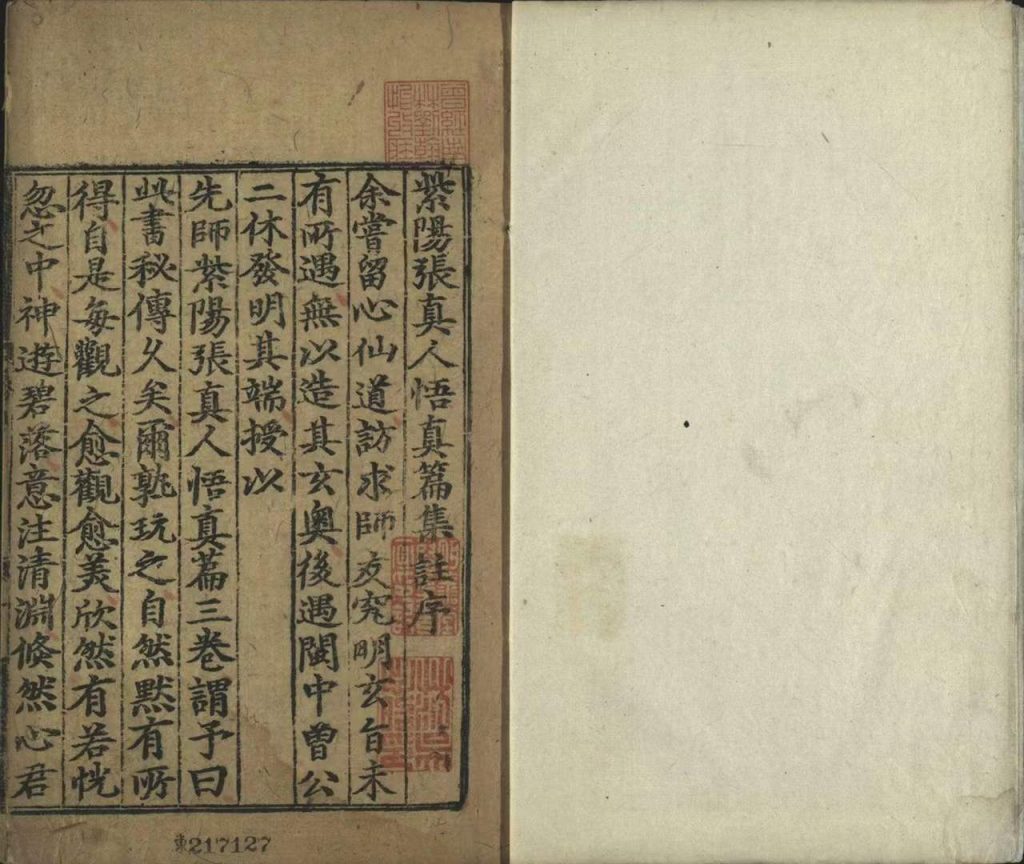 紫陽張真人悟真篇集註序
余嘗留心仙道訪求師友究明玄旨未
有所遇無以造其玄奧後遇閩中曾公
二休發明其端授以
先師紫陽張真人悟真篇三卷謂予曰
此書秘傳乆矣爾孰玩之自然黙有所
得自是每觀之愈觀愈美欣然有若恍
忽之中神遊碧落意注清淵倏然心君
東217127